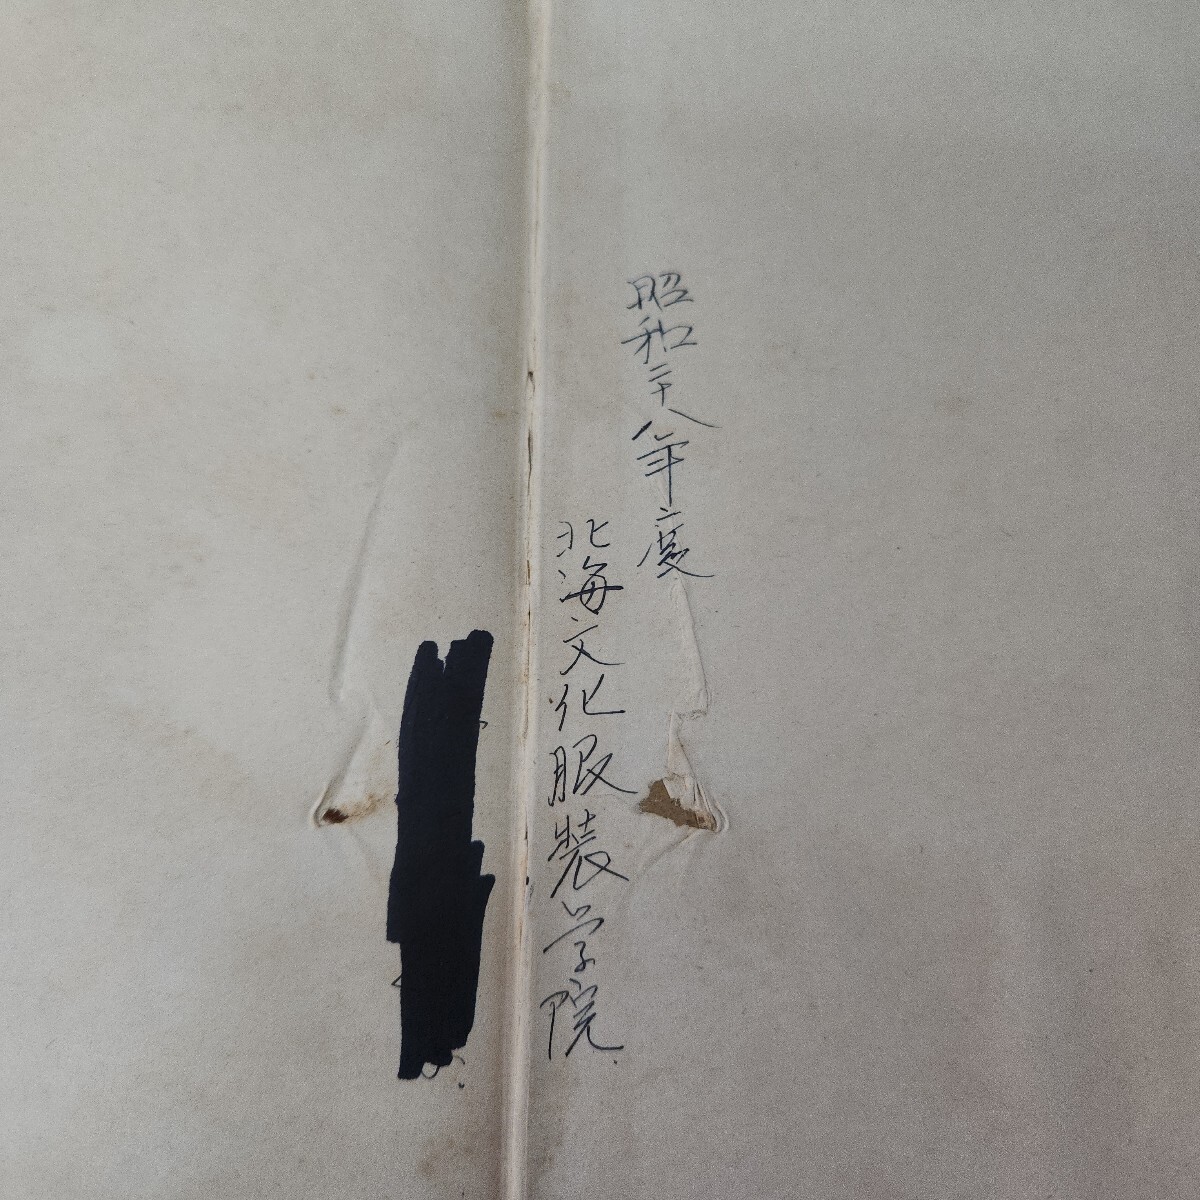 昭和二十八年度
北海文化服装学院